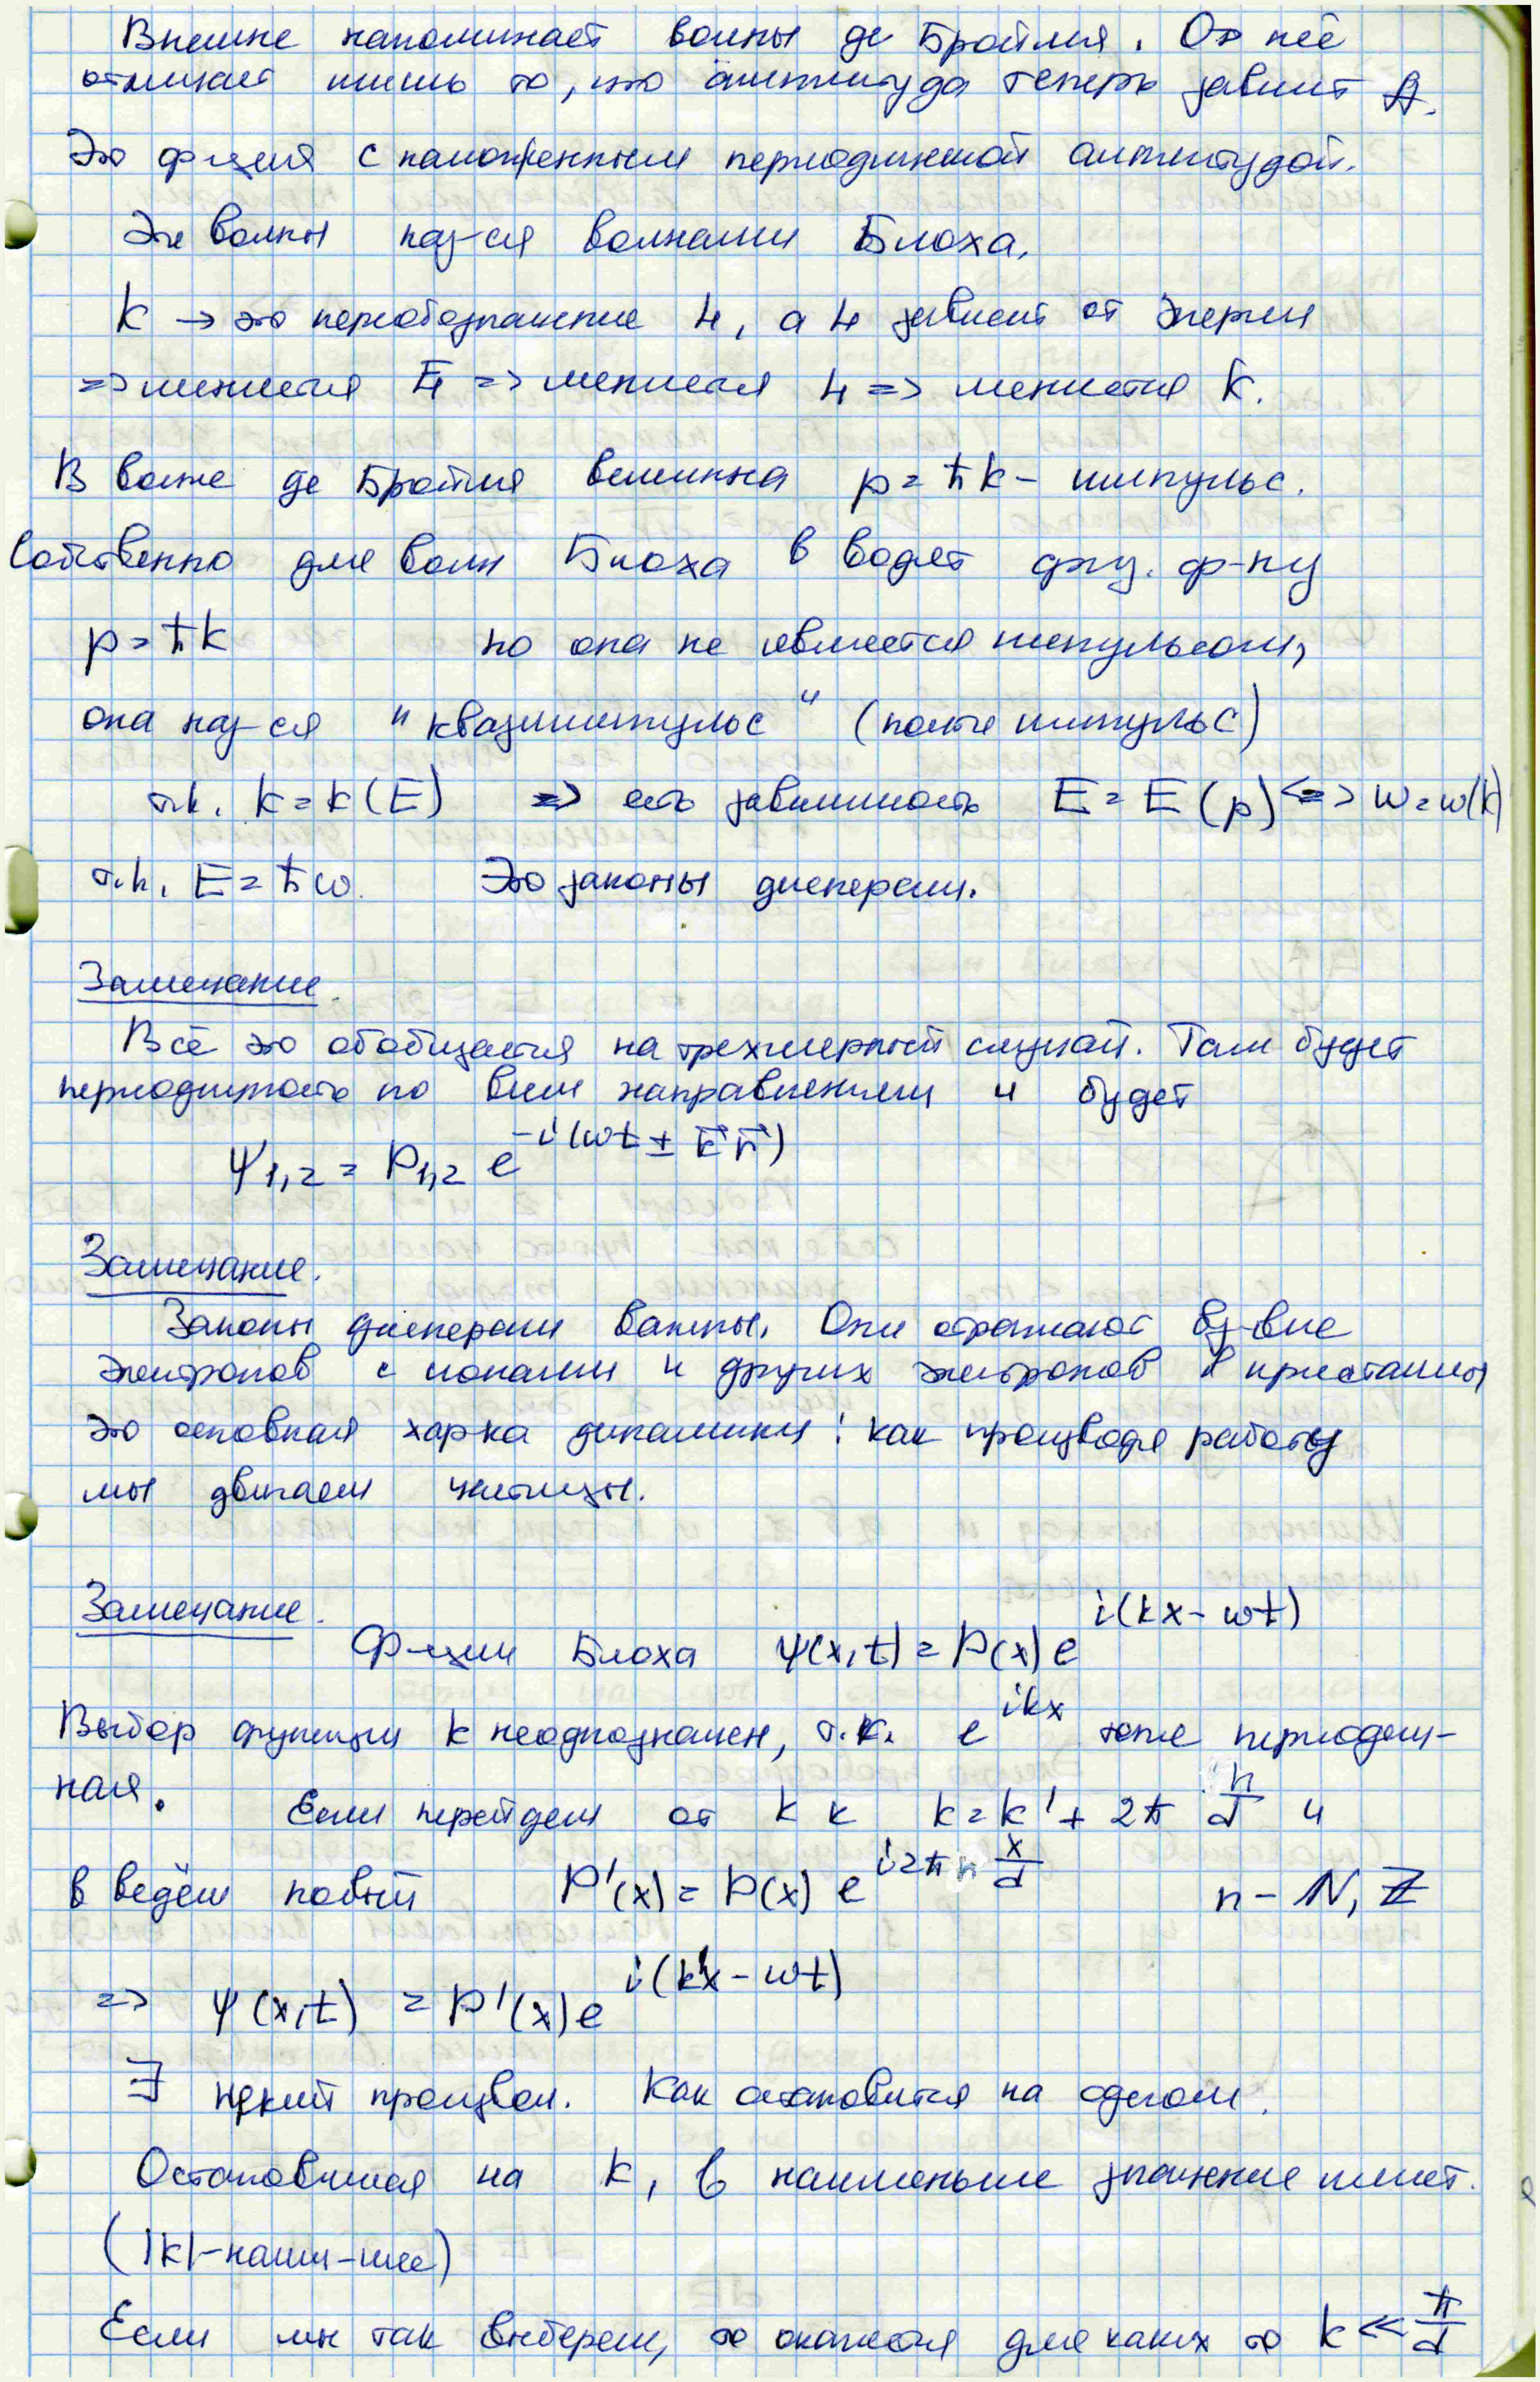 Внешне напоминает волны де Бройля. От неё
отличает лишь то, что амплитуда теперь зависит A.
Это ф-ция с наложенным периодичной амплитудой.
Эти волны наз-ся волнами Блоха.
k → это переобозначение ч, а ч зависит от энергии
=> меняется E => меняется ч => меняется k.
В волне де Бройля величина p = ħk - импульс.
Собственно для волн Блоха вводят ф-ну
p = ħk но она не является импульсом,
она наз-ся "квазиимпульс" (почти импульс)
т.к. k = k(E) => есть зависимость E = E(p) <=> w = w(k)
т.к. E = ħw. Это законы дисперсии.
Замечание.
Всё это обобщается на трехмерный случай. Там будет
периодичность по всем направлениям и будет
ψ1,2 = P1,2 e^{-i(wt ± k⃗r⃗)}
Замечание.
Законы дисперсии важны. Они отражают вз-вие
электронов с ионами и других электронов в кристаллы
это основная хар-ка динамики: как производя работу
мы двигаем частицы.
Замечание.
Ф-ции Блоха ψ(x,t) = P(x) e^{i(kx - wt)}
Выбор функции k неоднозначен, т.к. e^{ikx} тоже периодич-
ная. Если перейдем от k к k = k' + 2π n/d и
введём новый P'(x) = P(x) e^{i2πn x/d} n - N, Z
=> ψ(x,t) = P'(x) e^{i(k'x - wt)}
∃ некий произвол. Как остановится на одном.
Остановимся на k, в наименьше значение имеет.
(|k| - наим-шее)
Если мы так выберем, то окажется для каких то k << π/d